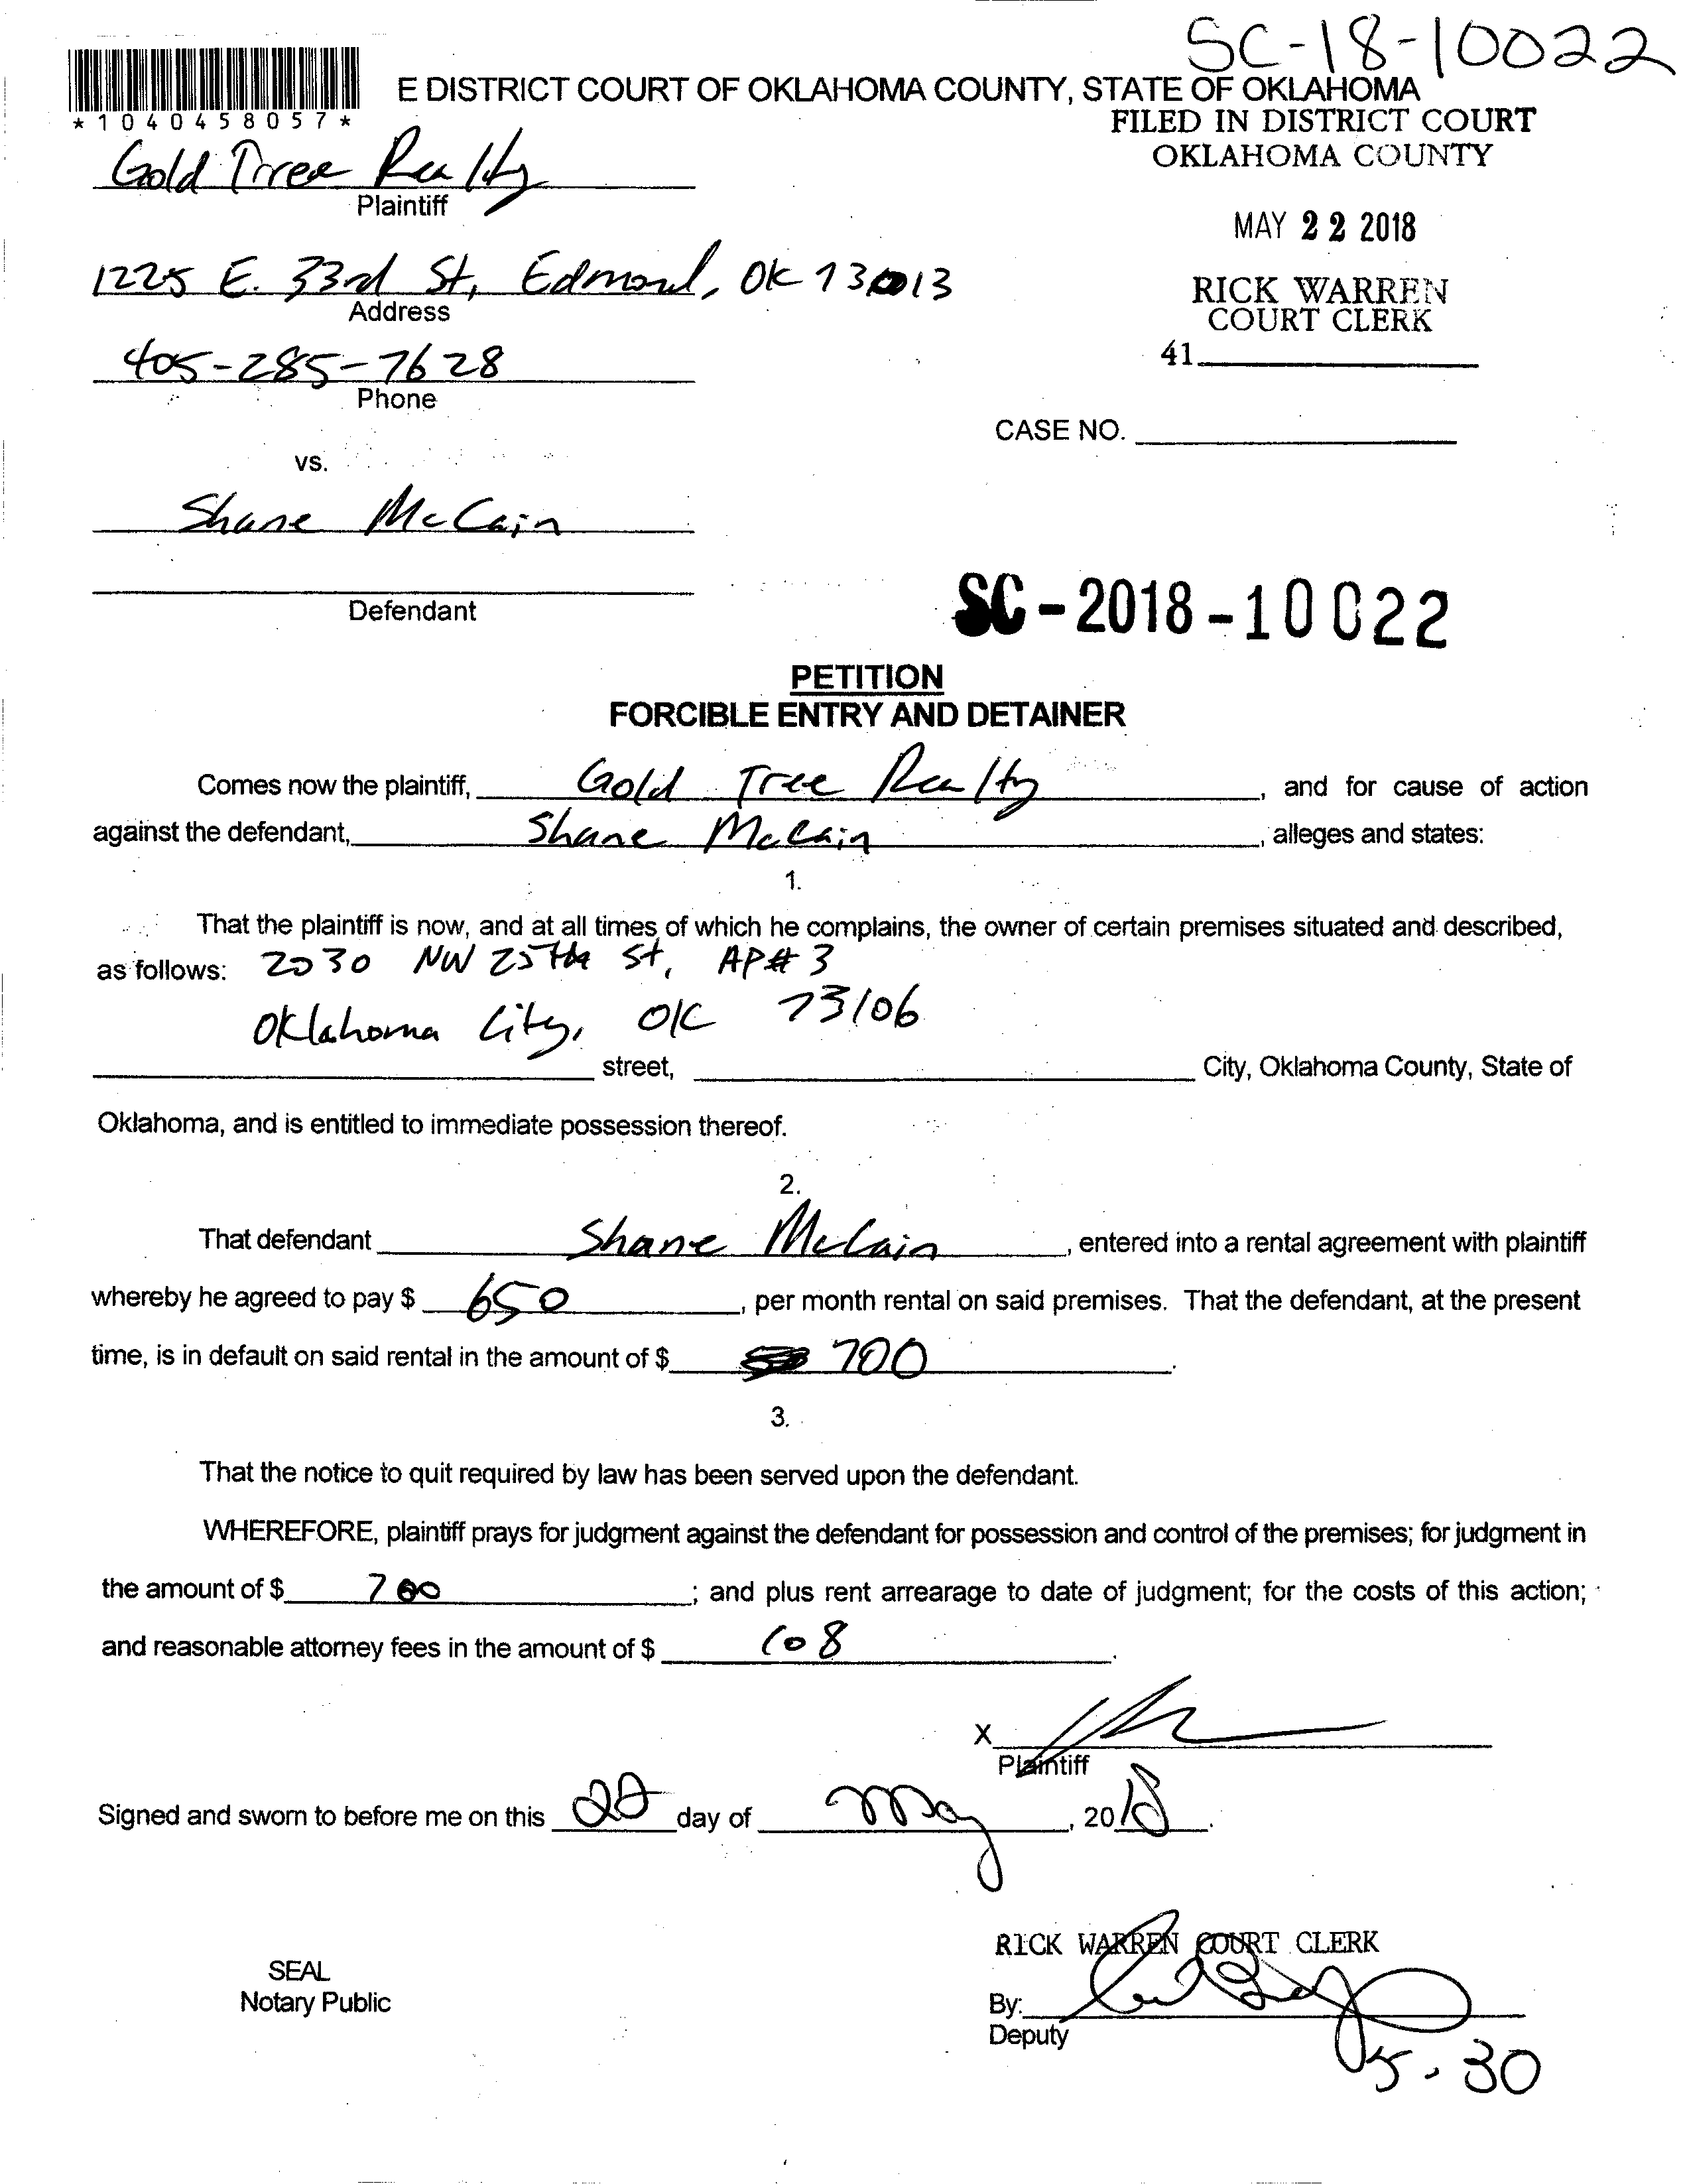 SC-18-10022
E DISTRICT COURT OF OKLAHOMA COUNTY, STATE OF OKLAHOMA
*1040458057*
FILED IN DISTRICT COURT
OKLAHOMA COUNTY
Gold Tree Realty
Plaintiff
MAY 22 2018
1225 E. 33rd St, Edmond, OK 73013
Address
RICK WARREN
COURT CLERK
41
405-285-7628
Phone
CASE NO.
vs.
Shane McCain
Defendant
SC-2018-10022
PETITION
FORCIBLE ENTRY AND DETAINER
Comes now the plaintiff, Gold Tree Realty, and for cause of action
against the defendant, Shane McCain, alleges and states:
1.
That the plaintiff is now, and at all times of which he complains, the owner of certain premises situated and described,
as follows: 2030 NW 25th St, AP# 3
Oklahoma City, OK 73106
street, City, Oklahoma County, State of
Oklahoma, and is entitled to immediate possession thereof.
2.
That defendant Shane McCain, entered into a rental agreement with plaintiff
whereby he agreed to pay $ 650, per month rental on said premises. That the defendant, at the present
time, is in default on said rental in the amount of $ 700.
3.
That the notice to quit required by law has been served upon the defendant.
WHEREFORE, plaintiff prays for judgment against the defendant for possession and control of the premises; for judgment in
the amount of $ 700; and plus rent arrearage to date of judgment; for the costs of this action;
and reasonable attorney fees in the amount of $ 108.
X
Plaintiff
Signed and sworn to before me on this 22 day of May, 2018.
RICK WARREN COURT CLERK
SEAL
Notary Public
By:
Deputy
5-30